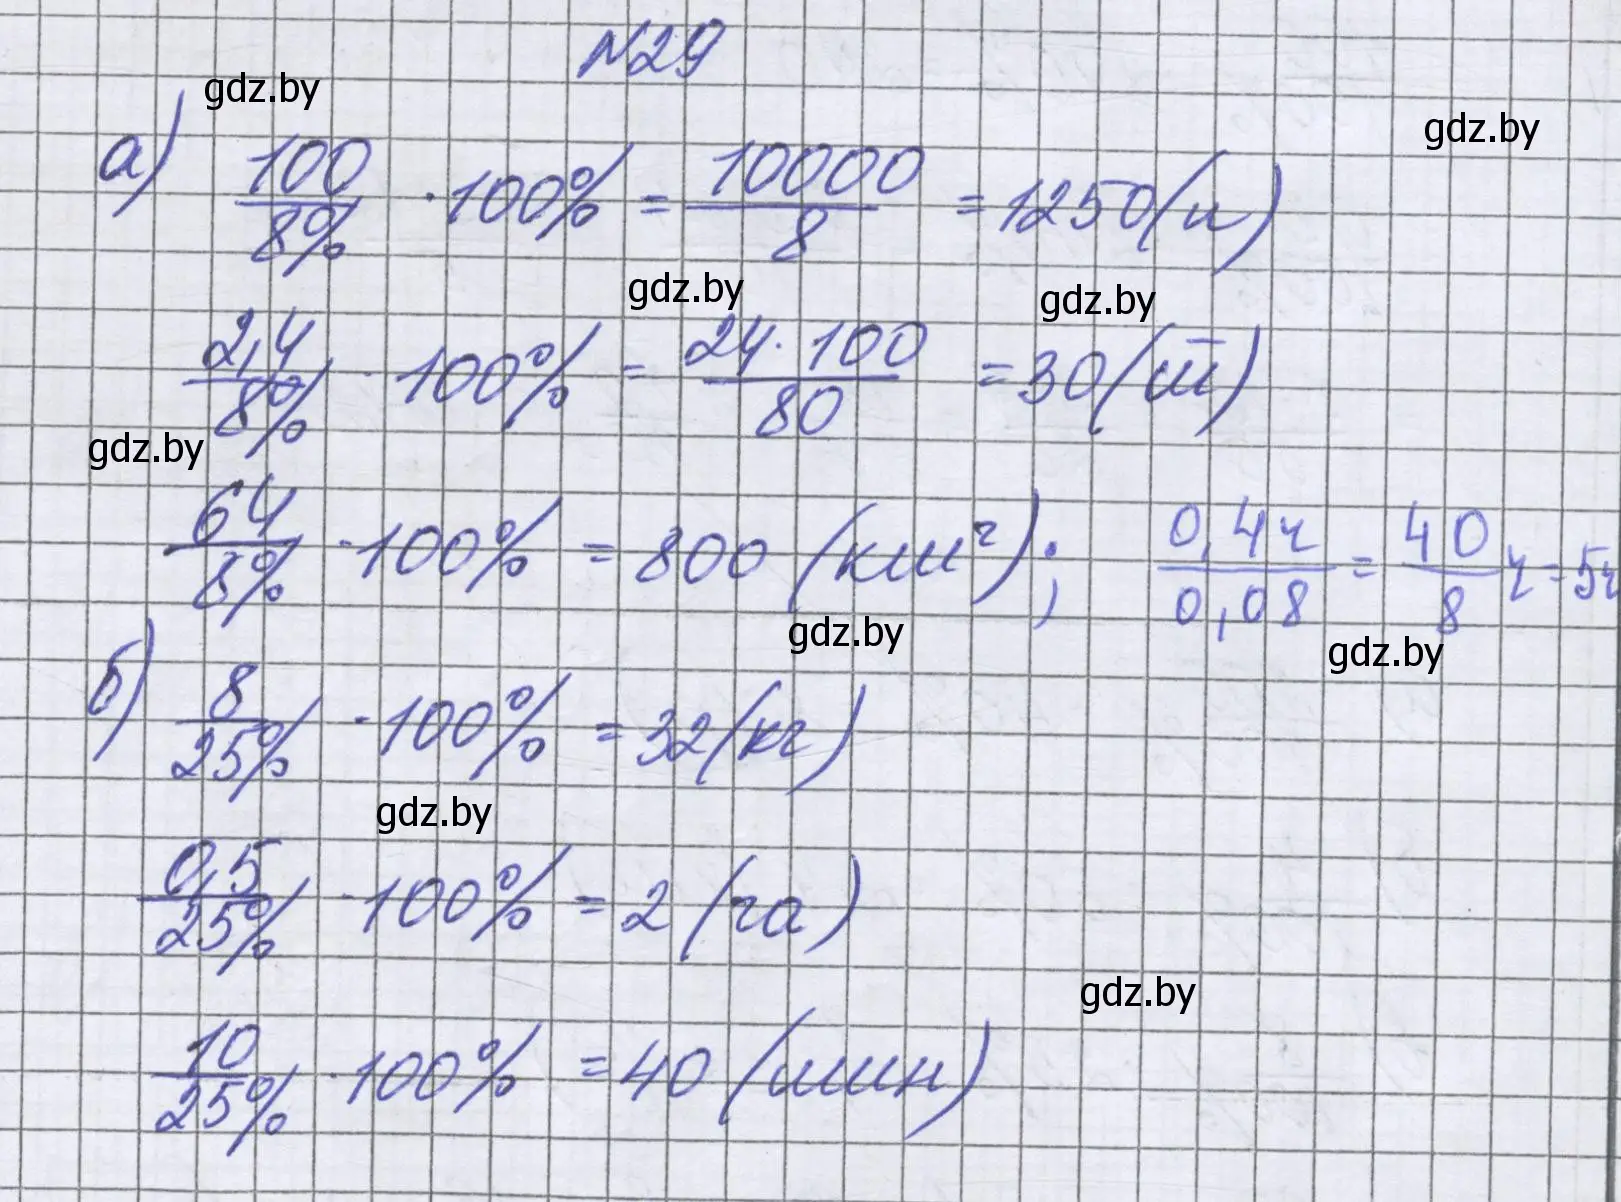 №29
gdz.by
gdz.by
а) 100/8% · 100% = 10000/8 = 1250 (л)
gdz.by
gdz.by
2,4/8% · 100% = 24·100/80 = 30 (т)
gdz.by
64/8% · 100% = 800 (км²); 0,4ч/0,08 = 40/8 ч = 5ч
gdz.by
gdz.by
б) 8/25% · 100% = 32 (кг)
gdz.by
0,5/25% · 100% = 2 (га)
gdz.by
10/25% · 100% = 40 (мин)